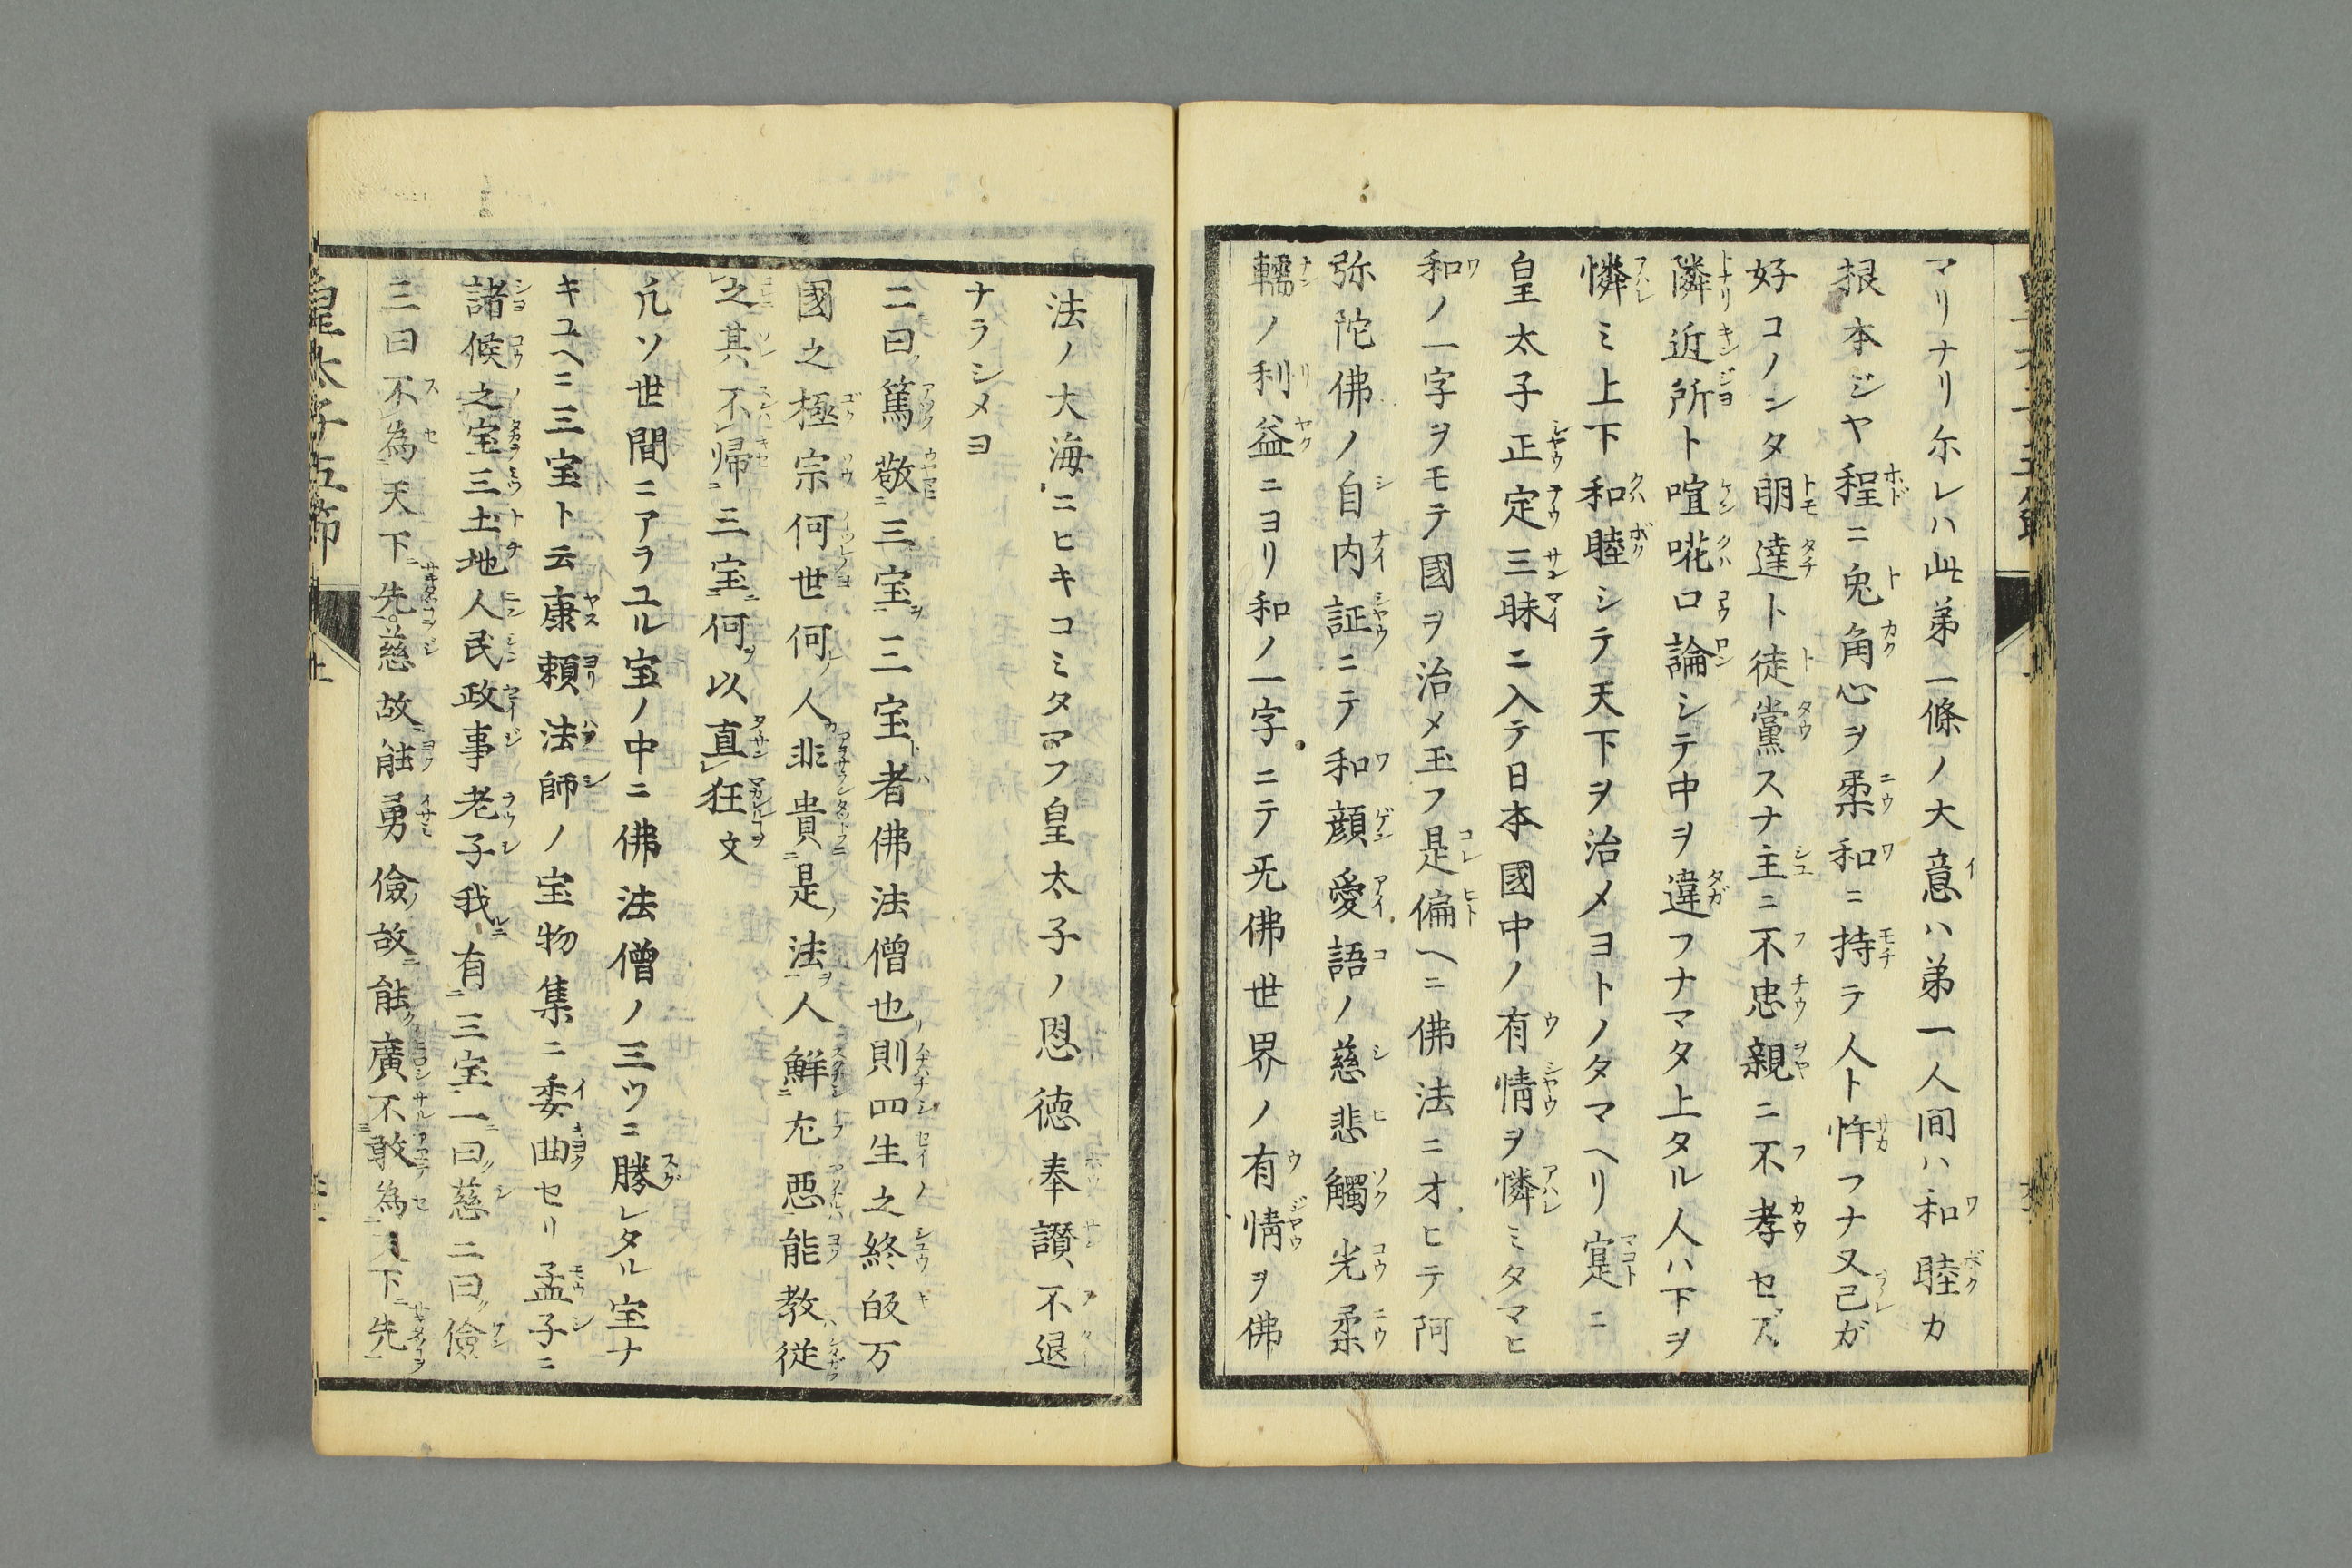 マリナリ尓レハ此苐一條ノ大意ハ苐一人間ハ和睦カ
根本ジヤ程ニ兎角心ヲ柔和ニ持テ人ト忤フナ又己ガ
好コノシタ朋達ト徒黨スナ主ニ不忠親ニ不孝セズ
隣近所ト喧嘩口論シテ中ヲ違フナマタ上タル人ハ下ヲ
憐ミ上下和睦シテ天下ヲ治メヨトノタマヘリ寔ニ
皇太子正定三昧ニ入テ日本國中ノ有情ヲ憐ミタマヒ
和ノ一字ヲモテ國ヲ治メ玉フ是偏ヘニ佛法ニオヒテ阿
弥陀佛ノ自内証ニテ和顔愛語ノ慈悲觸光柔
輭ノ利益ニヨリ和ノ一字ニテ旡佛世界ノ有情ヲ佛
法ノ大海ニヒキコミタマフ皇太子ノ恩徳奉讃不退
ナラシメヨ
二曰篤敬三宝三宝者佛法僧也則四生之終皈万
國之極宗何世何人非貴是法人鮮尤悪能教従
之其不帰三宝何以直狂文
凢ソ世間ニアラユル宝ノ中ニ佛法僧ノ三ツニ勝レタル宝ナ
キユヘニ三宝ト云康頼法師ノ宝物集ニ委曲セリ孟子ニ
諸候之宝三土地人民政事老子我有三宝一曰慈二曰儉
三曰不為天下先慈故能勇儉故能廣不敢為天下先
皇太子五節